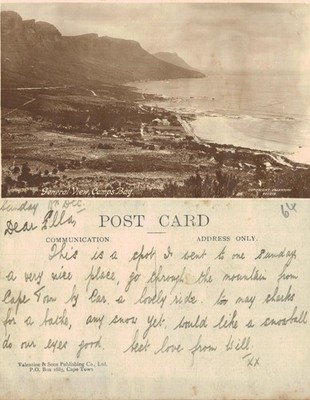 General View, Camps Bay.
Sunday Dec.
Dear Ella,
64
POST CARD
COMMUNICATION.
ADDRESS ONLY.
This is a spot I went to one Sunday,
a very nice place, go through the mountain from
Cape Town by Car, a lovely ride. too may sharks
for a bathe, any snow yet. would like a snowball
do our eyes good. best love from Will.
xx
Valentine & Sons Publishing Co., Ltd.
P.O. Box 1685, Cape Town.